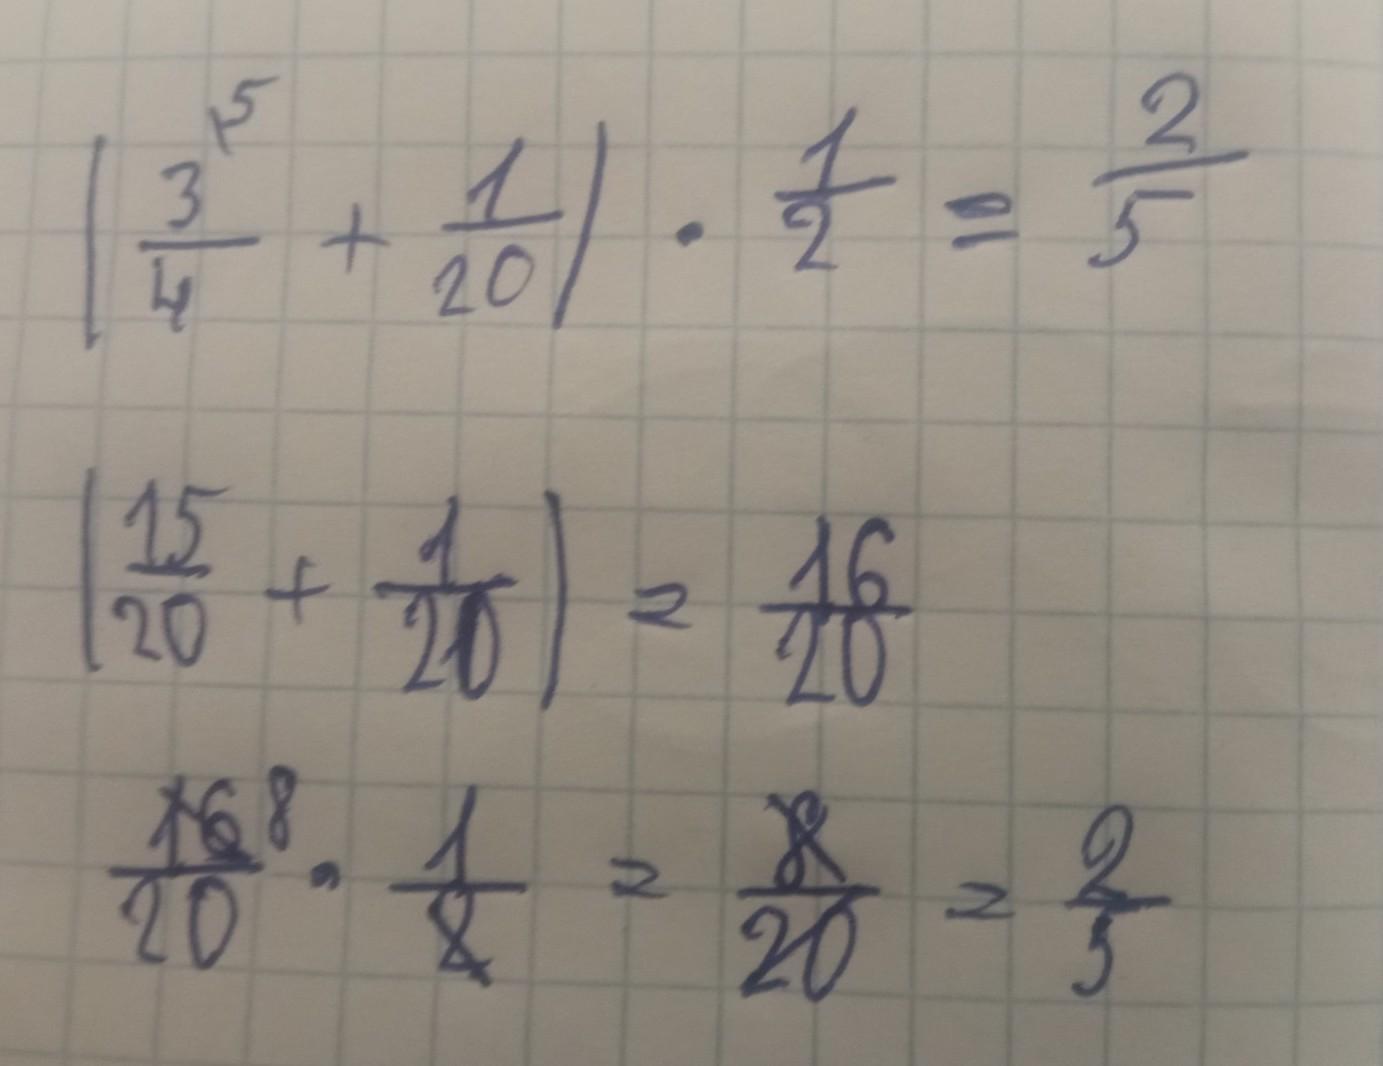 (3/4⁵ + 1/20) · 1/2 = 2/5
(15/20 + 1/20) = 16/20
16/20 8 · 1/2 = 8/20 = 2/5